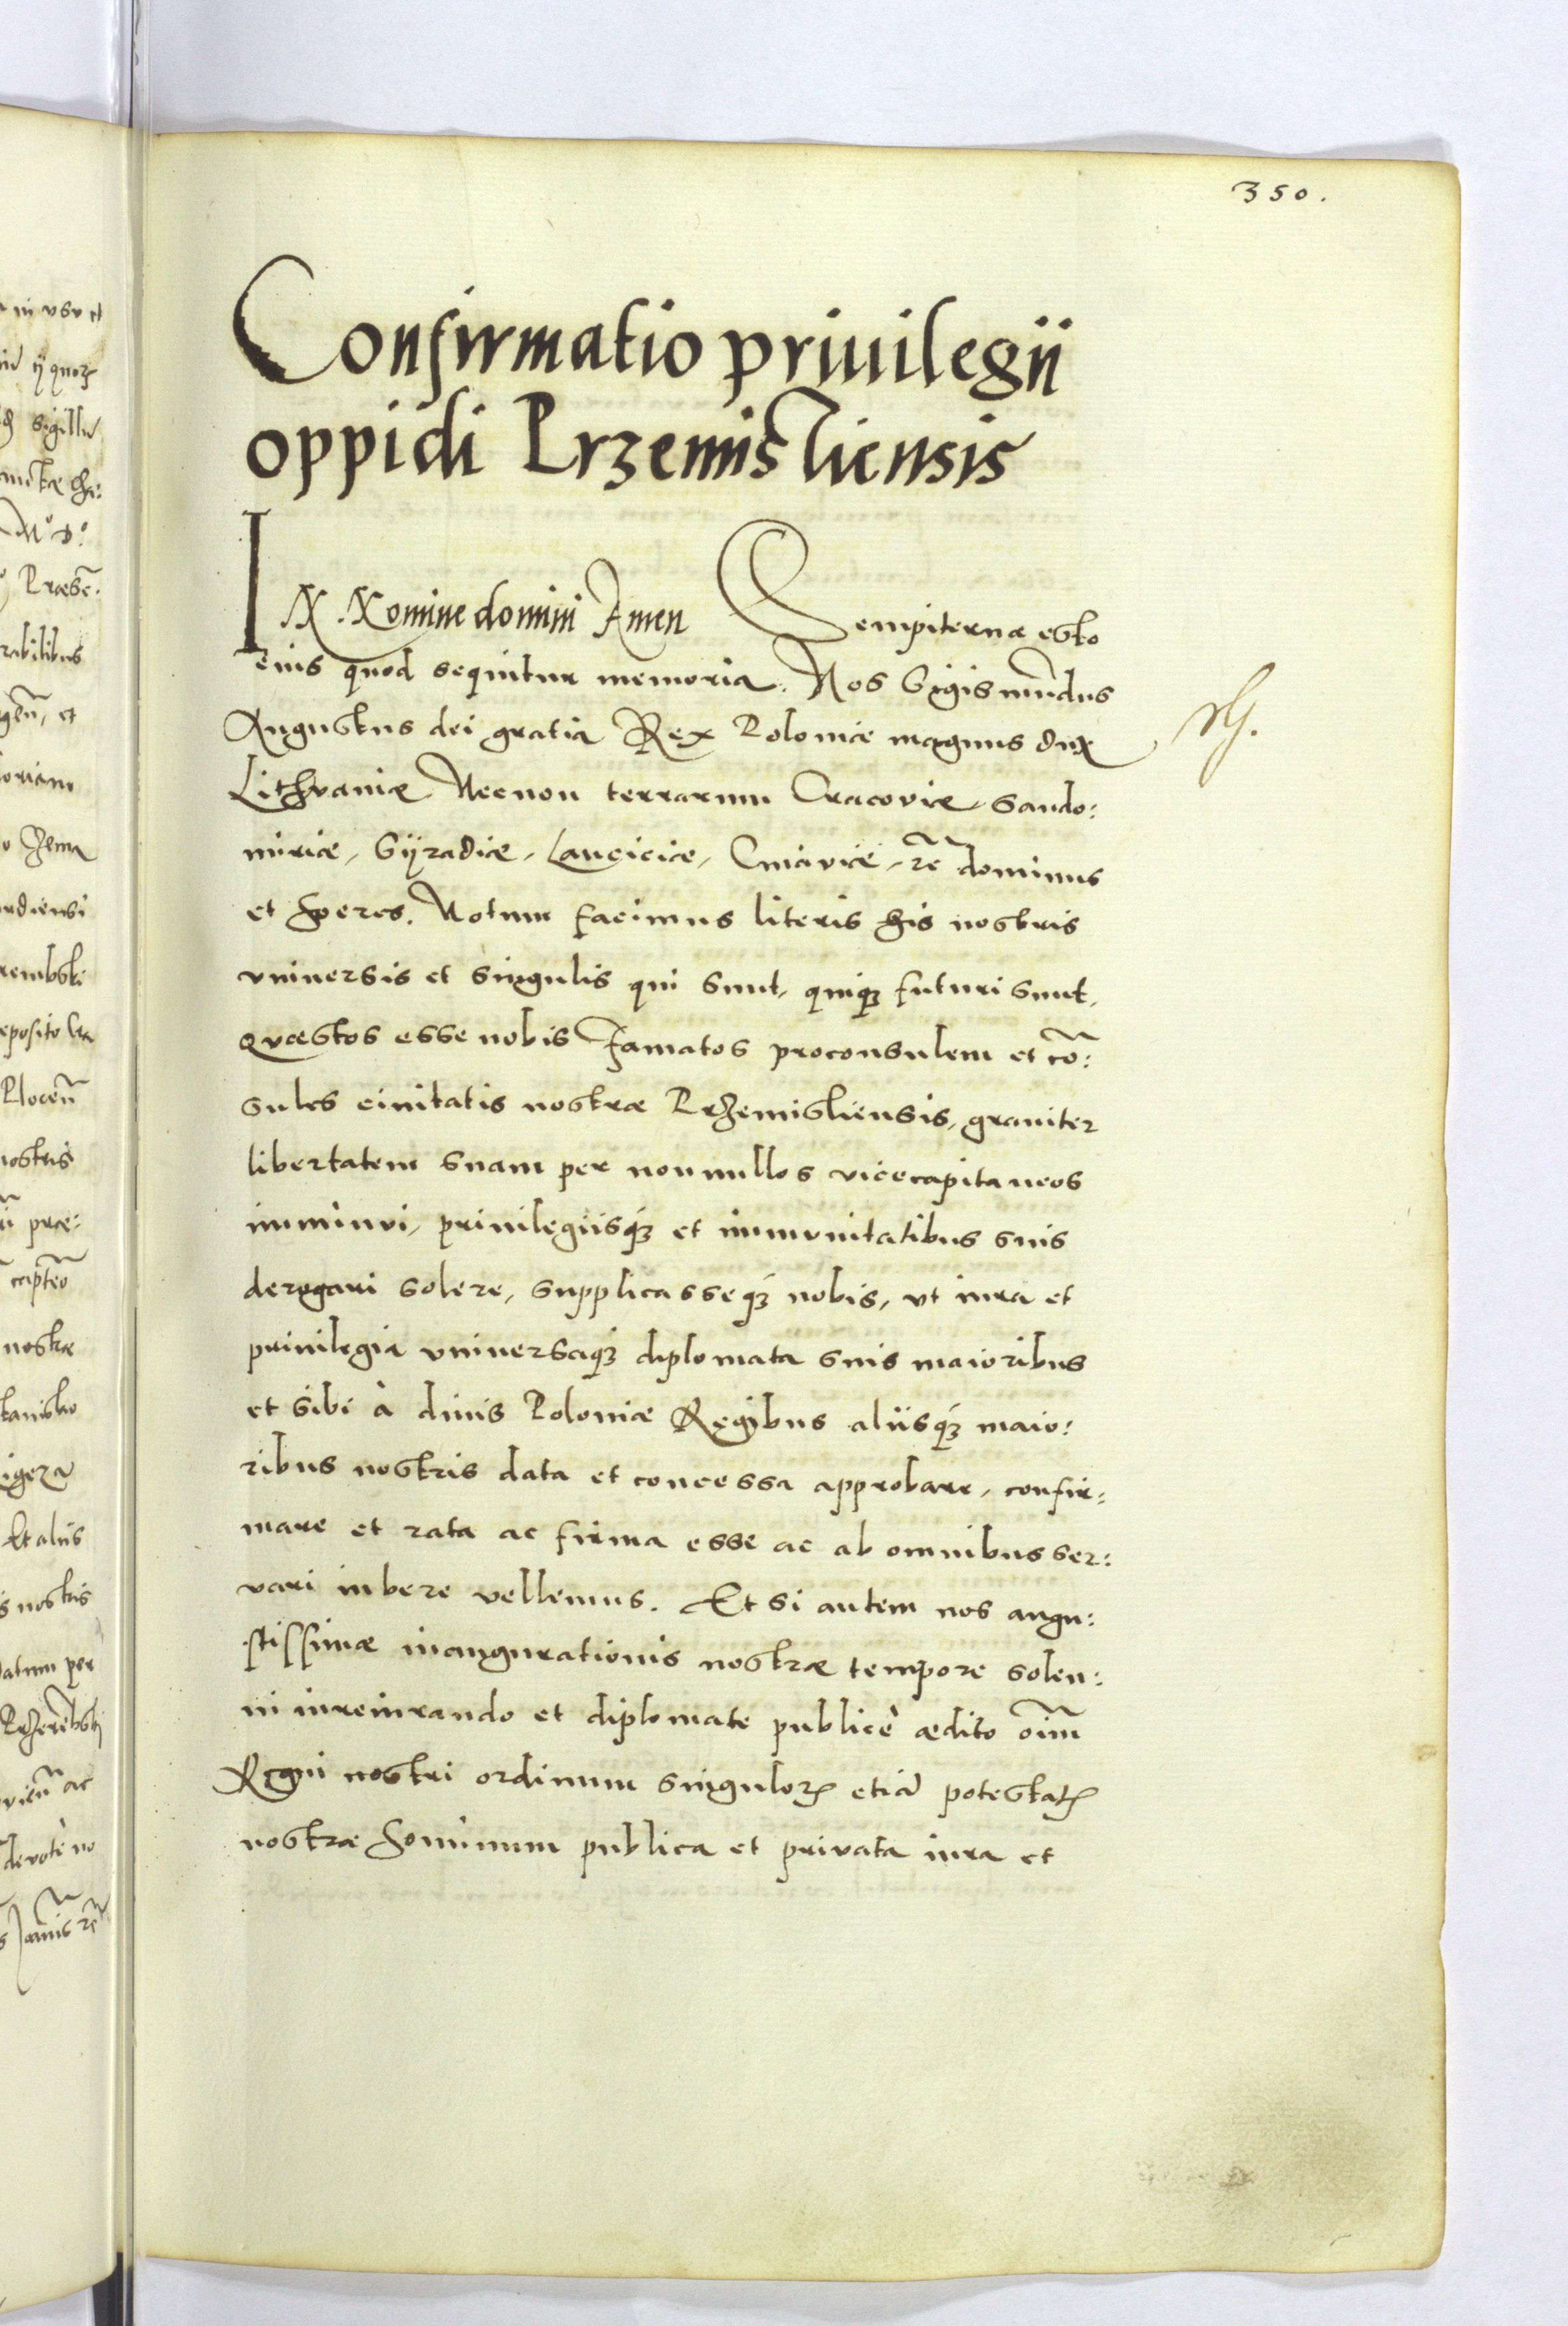 350.
Confirmatio priuilegii
oppidi Przemisliensis
IN Nomine domini Amen Sempiternæ esto
eius quod sequitur memoria. Nos Sigismu͂dus
Augustus dei gratia Rex Poloniæ magnus dux
Lithvaniæ Necnon terrarum Cracoviæ, Sando:
miriæ, Syradiæ, Lanciciæ, Cuiaviæ, rc̃ dominus
et Hæres. Notum facimus literis his nostris
vniuersis et singulis qui sunt, quiqꝫ futuri sunt,
Qvæstos esse nobis Famatos proconsulem et co͂:
sules ciuitatis nostræ Przemisliensis, grauiter
libertatem suam per nonnullos vicecapitaneos
imminvi, priuilegiisqꝫ et immvnitatibus suis
derogari solere, supplicasseqꝫ nobis, vt iura et
priuilegia vniuersaqꝫ diplomata suis maioribus
et sibi à diuis Poloniæ Regibus aliisqꝫ maio:
ribus nostris data et concessa approbare, confir:
mare et rata ac firma esse ac ab omnibus ser:
vari iubere vellemus. Et si autem nos augu:
stissimæ inaugurationis nostræ tempore solen:
ni iureiurando et diplomate publicè ædito oi͂m
Regni nostri ordinum singuloꝝ etia͂ potestatꝫ
nostræ hominum publica et privata iura et